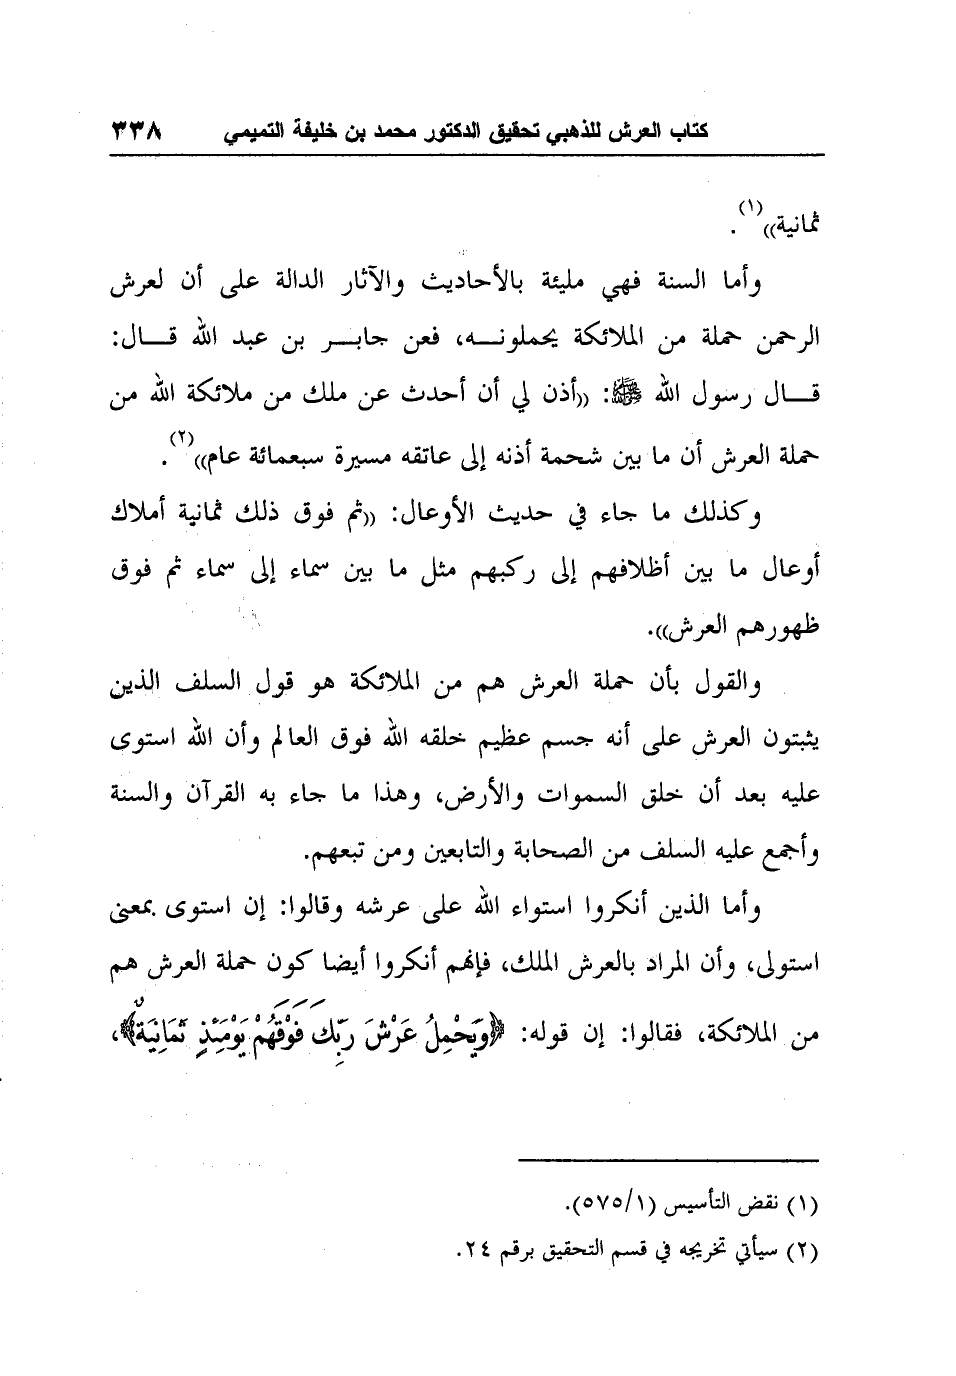 كتاب العرش للذهبي تحقيق الدكتور محمد بن خليفة التميمي ٣٣٨
ثمانية))(١).
وأما السنة فهي مليئة بالأحاديث والآثار الدالة على أن لعرش
الرحمن حملة من الملائكة يحملونـــه، فعن جابـــر بن عبد الله قـــال:
قـــال رسول الله ﷺ: ((أذن لي أن أحدث عن ملك من ملائكة الله من
حملة العرش أن ما بين شحمة أذنه إلى عاتقه مسيرة سبعمائة عام))(٢).
وكذلك ما جاء في حديث الأوعال: ((ثم فوق ذلك ثمانية أملاك
أوعال ما بين أظلافهم إلى ركبهم مثل ما بين سماء إلى سماء ثم فوق
ظهورهم العرش)).
والقول بأن حملة العرش هم من الملائكة هو قول السلف الذين
يثبتون العرش على أنه جسم عظيم خلقه الله فوق العالم وأن الله استوى
عليه بعد أن خلق السموات والأرض، وهذا ما جاء به القرآن والسنة
وأجمع عليه السلف من الصحابة والتابعين ومن تبعهم.
وأما الذين أنكروا استواء الله على عرشه وقالوا: إن استوى بمعنى
استولى، وأن المراد بالعرش الملك، فإنهم أنكروا أيضا كون حملة العرش هم
من الملائكة، فقالوا: إن قوله: ﴿وَيَحْمِلُ عَرْشَ رَبِّكَ فَوْقَهُمْ يَوْمَئِذٍ ثَمَانِيَةٌ﴾،
(١) نقض التأسيس (٥٧٥/١).
(٢) سيأتي تخريجه في قسم التحقيق برقم ٢٤.